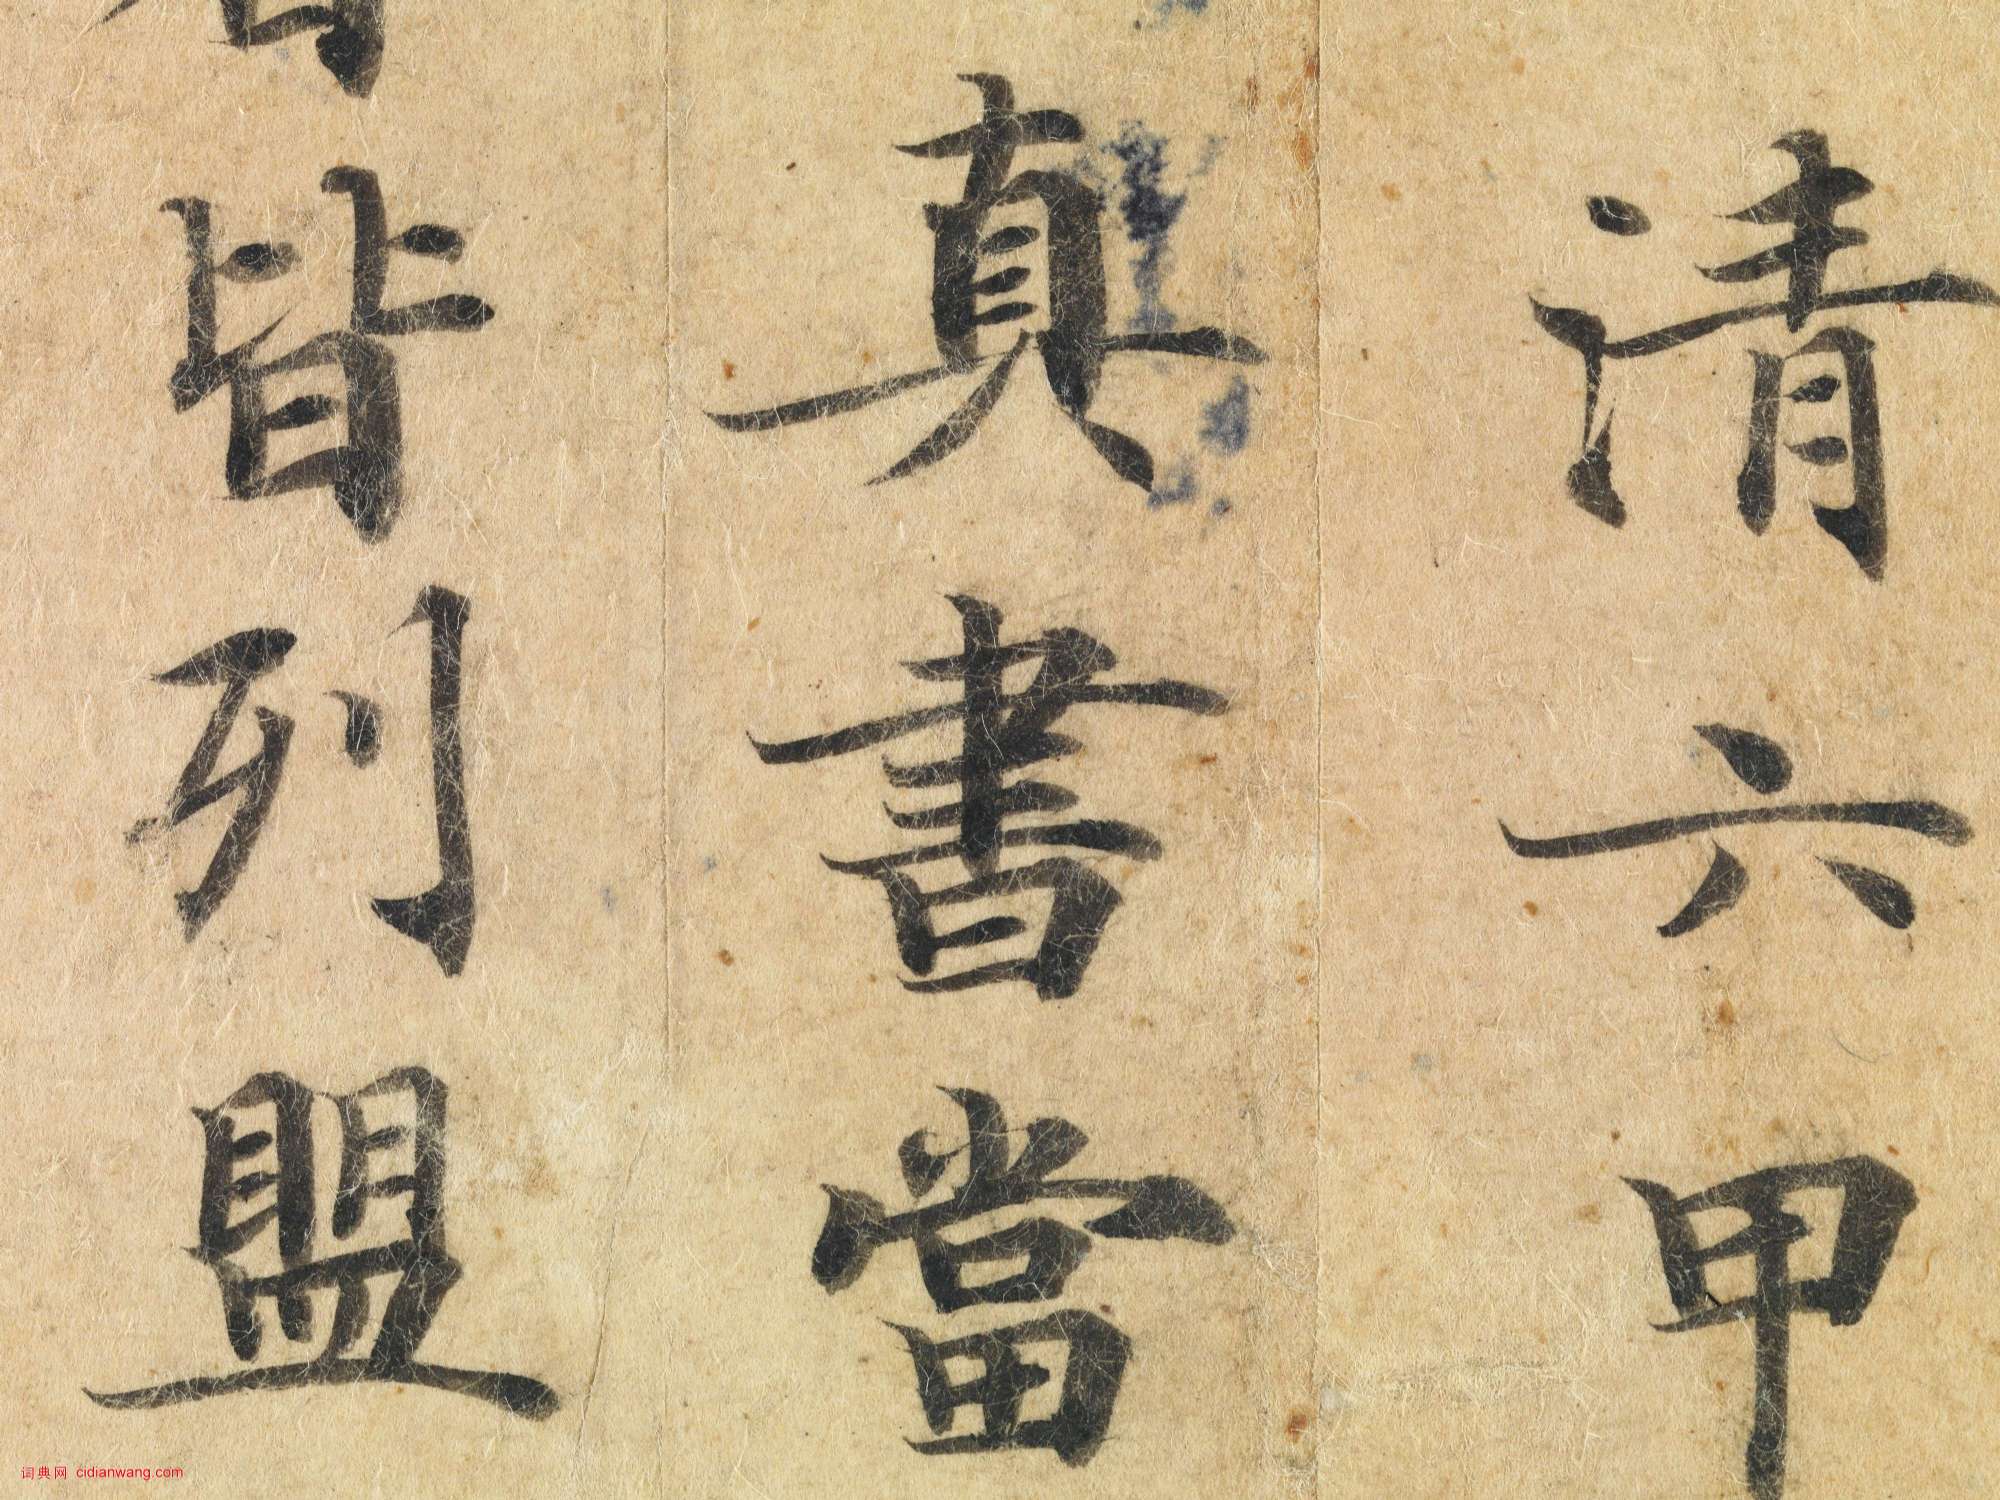 清六甲
真書當
皆列盟
词典网 cidianwang.com